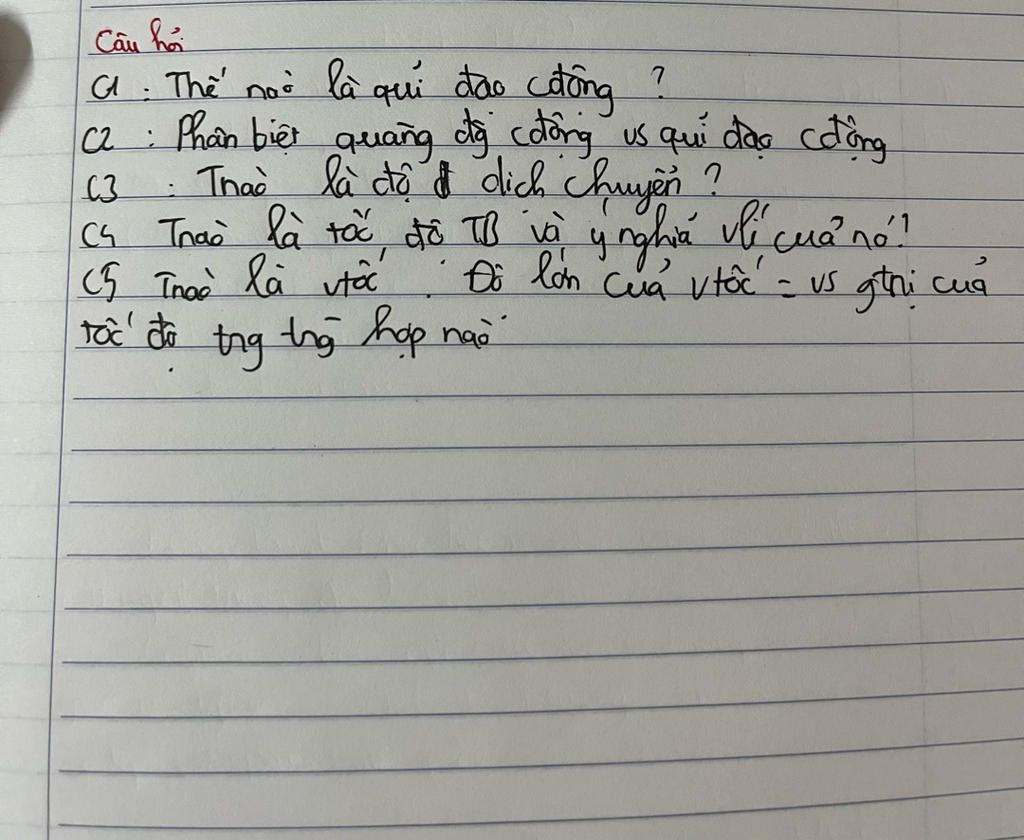 Câu hỏi
C1 : Thế nào là quĩ đạo cđộng ?
C2 : Phân biệt quãng đg cđộng vs quĩ đạo cđộng
C3 : Tnào là độ dịch chuyển ?
C4 Tnào là tốc độ TB và ý nghĩa vlí của nó?
C5 Tnào là vtốc . Độ lớn của vtốc = vs gtrị của
tốc độ tng trg hợp nào